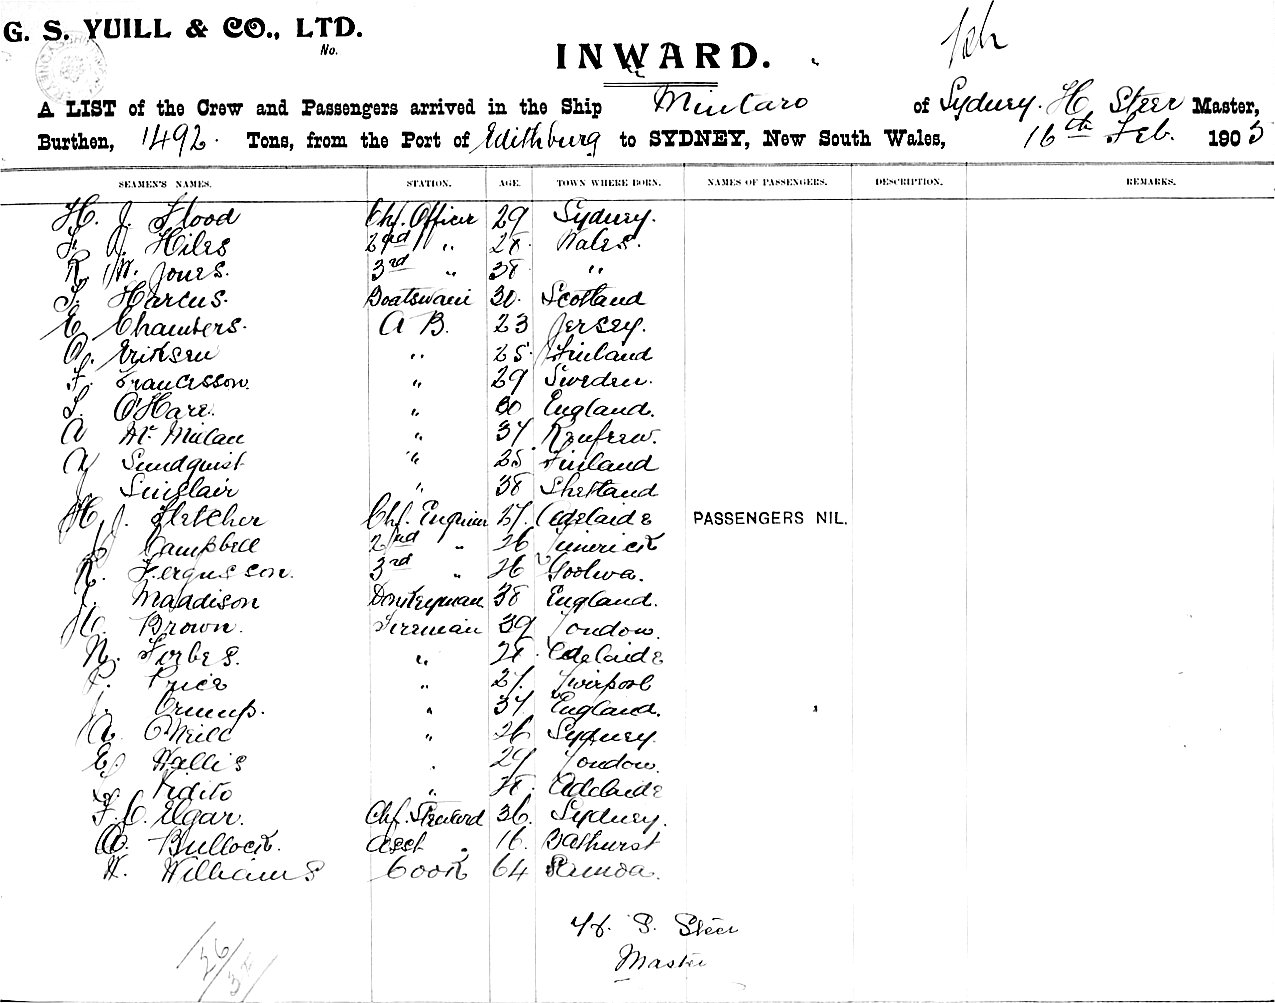 G. S. YUILL & CO., LTD.
No.
INWARD.
A LIST of the Crew and Passengers arrived in the Ship Mintaro of Sydney. H Steer Master,
Burthen, 1492. Tons, from the Port of Edithburg to SYDNEY, New South Wales, 16th Feb. 1903
SEAMEN'S NAMES. STATION. AGE. TOWN WHERE BORN. NAMES OF PASSENGERS. DESCRIPTION. REMARKS.
H. J. Flood Chf. Officer 29 Sydney.
Hiles 2nd " 28 Wales.
R. W. Jones. 3rd " 38 "
Harcus. Boatswain 30. Scotland
E Chambers. A B. 23 Jersey.
O. Eriksen " 25 Finland
F. Francesson. " 29 Sweden.
O'Hare. " 30 England.
A McMillan " 37 Renfrew.
Sundquist " 25 Finland
J Sinclair " 38 Shetland
H. J. Fletcher Chf. Engineer 37. Adelaide PASSENGERS NIL.
J Campbell 2nd " 26 Limerick
R. Fergusson. 3rd " 26 Goolwa.
Maddison Donkeyman 38 England.
H. Brown. Fireman 39 London.
N. Forbes. " 28 Adelaide
P. Price " 27. Liverpool
J. " 37 England.
A. O'Neill " 26 Sydney.
E. Wallis " 29 London.
" 28. Adelaide
F. C. Elgar. Chf. Steward 36. Sydney.
Bullock. Asst " 16. Bathurst
W. Williams Cook 64 Samoa.
S. Steer
Master
26/38